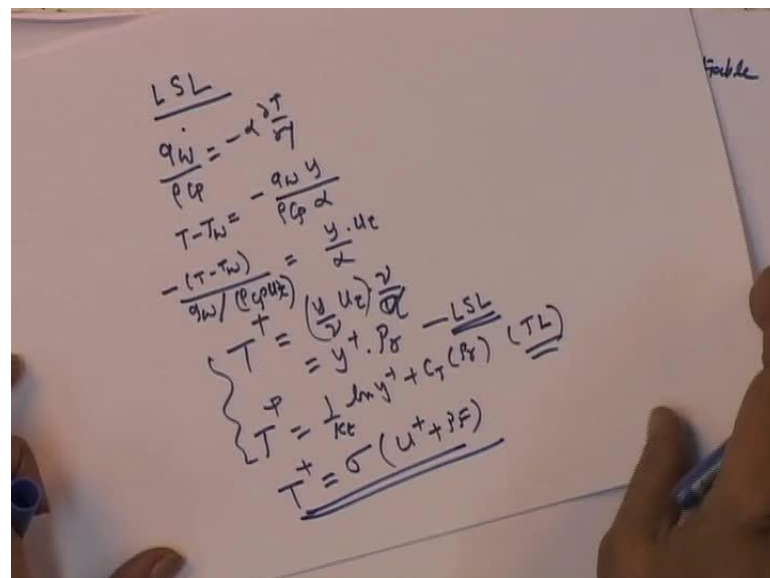 LSL
q̇w/ρCp = -α ∂T/∂y
T-Tw = - qw y/ρCp α
-(T-Tw)/qw/(ρCpuτ) = y·uτ/α
T⁺ = (y/ν uτ)·ν/α
= y⁺·Pr - LSL
T⁺ = 1/κt ln y⁺ + CT(Pr) (TL)
T⁺ = σ(u⁺+PF)